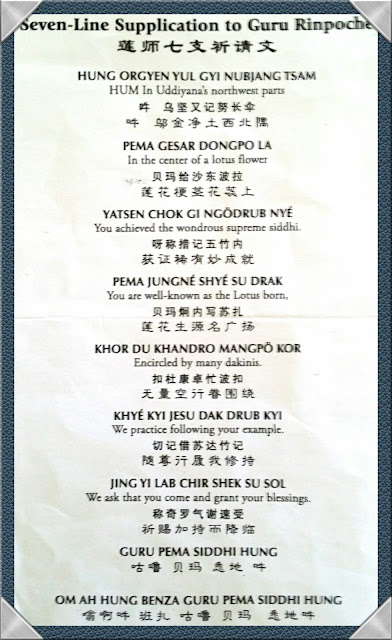 Seven-Line Supplication to Guru Rinpoche
莲师七支祈请文
HUNG ORGYEN YUL GYI NUBJANG TSAM
HUM In Uddiyana's northwest parts
吽 乌坚又记努长伞
吽 邬金净土西北隅
PEMA GESAR DONGPO LA
In the center of a lotus flower
贝玛给沙东波拉
莲花梗茎花蕊上
YATSEN CHOK GI NGÖDRUB NYÉ
You achieved the wondrous supreme siddhi.
呀称措记五竹内
获证稀有妙成就
PEMA JUNGNÉ SHYÉ SU DRAK
You are well-known as the Lotus born,
贝玛炯内写苏扎
莲花生源名广扬
KHOR DU KHANDRO MANGPÖ KOR
Encircled by many dakinis.
扣杜康卓忙波扣
无量空行眷围绕
KHYÉ KYI JESU DAK DRUB KYI
We practice following your example.
切记借苏达竹记
随尊行履我修持
JING YI LAB CHIR SHEK SU SOL
We ask that you come and grant your blessings.
称奇罗气谢速受
祈赐加持而降临
GURU PEMA SIDDHI HUNG
咕噜 贝玛 悉地 吽
OM AH HUNG BENZA GURU PEMA SIDDHI HUNG
嗡啊吽 班扎 咕噜 贝玛 悉地吽